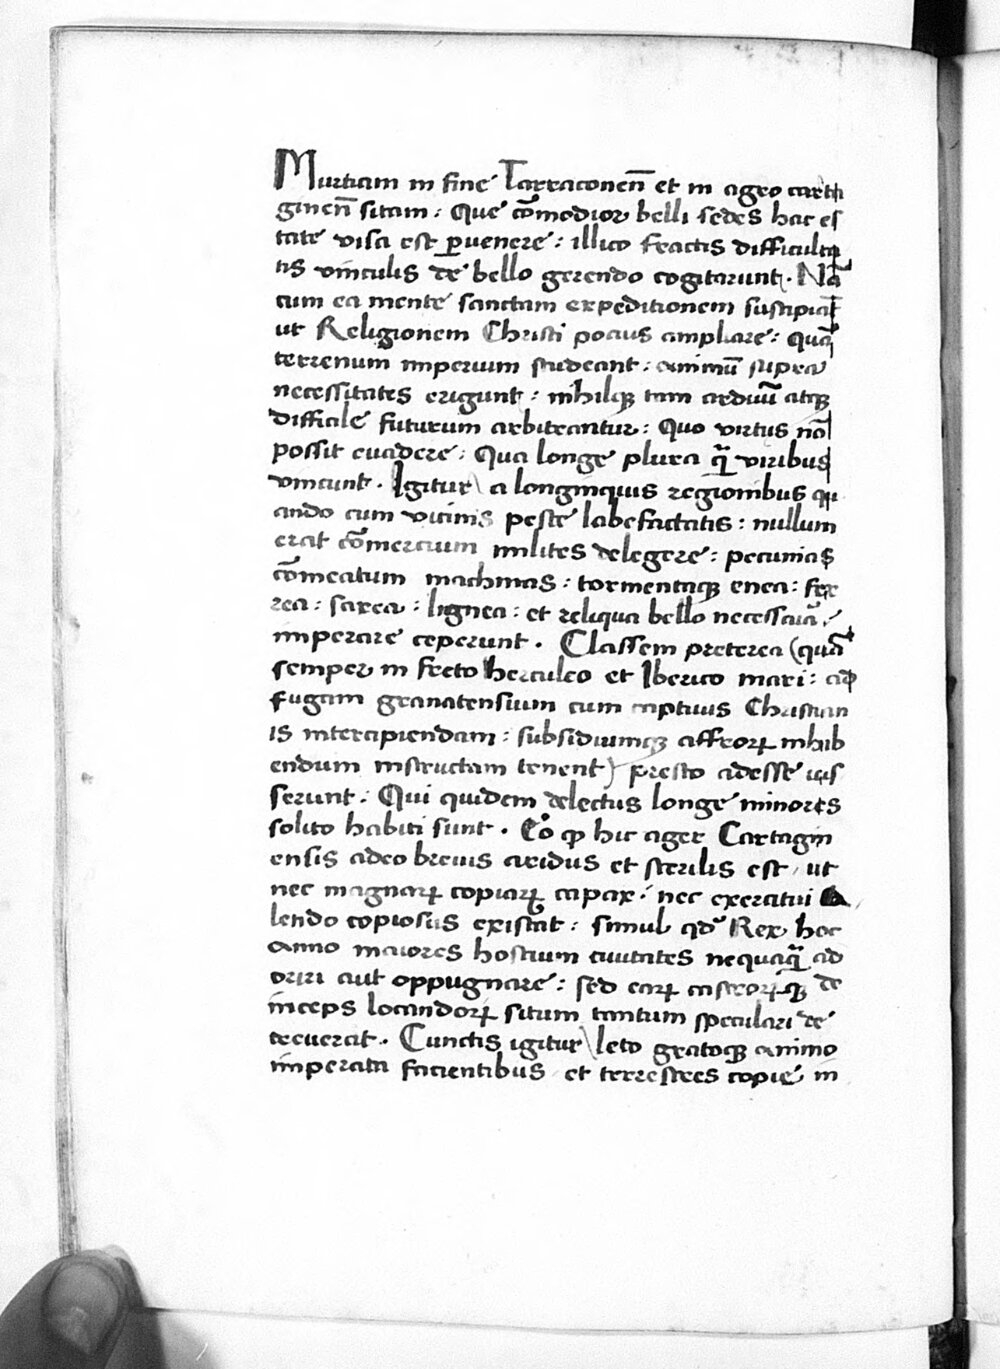 Murtiam in fine Tarraconen̄ et in agro carta
ginen̄ sitam : Que cōmodior belli sedes hac es
tate visa est ꝑuenere : illico fractis difficulta
tis vinculis de bello gerendo cogitarunt . Nā
cum ea mente sanctam expeditionem suscipiāt
ut Religionem Christi potius ampliare : quā
terrenum imperium studeant : animū supra
necessitates erigunt : nihilqꝫ tam arduū atqꝫ
difficile futurum arbitrantur : Quo virtus nō
possit euadere : Qua longe plura q̄ viribus
vincunt . Igitur a longinquis regionibus qu
ando cum vicinis peste labefactatis : nullum
erat cōmercium milites delegere : pecunias
cōmeatum machinas : tormentaqꝫ enea : fer
rea : saxea : lignea : et reliqua bello necessaīa
imperare ceperunt . Classem preterea (quā
semper in freto herculeo et Iberico mari : ad
fugam granatensium cum captiuis Christian
is intercipiendam : subsidiumqꝫ affroꝝ inhib
endum instructam tenent) presto adesse ius
serunt : Qui quidem delectus longe minores
solito habiti sunt . Eo ꝙ hic ager Cartagin
ensis adeo breuis aridus et sterilis est , ut
nec magnaꝝ copiaꝝ capax : nec exercitui a
lendo copiosus existat : simul qd̓ Rex hoc
anno maiores hostium ciuitates nequaq̄ ad
oriri aut oppugnare : sed eaꝝ castroꝝqꝫ de
inceps locandoꝝ situm tantum speculari de
creuerat . Cunctis igitur leto gratoqꝫ animo
imperata facientibus et terrestres copie in